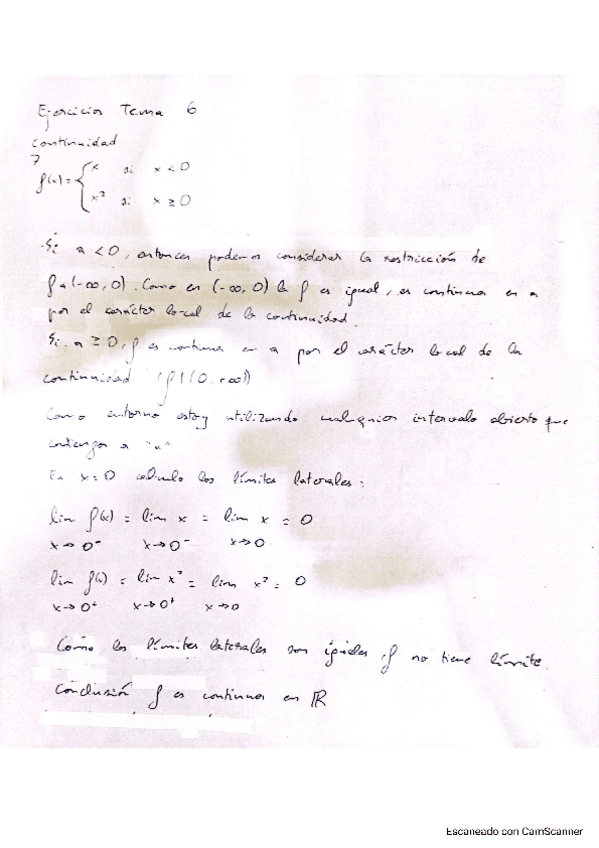 Ejercicios Tema 6
Continuidad
7
f(x) = { x si x < 0
x² si x ≥ 0
·Si a < 0, entonces podemos considerar la restricción de
f a (-∞, 0). Como en (-∞, 0) la f es igual, es continua en a
por el carácter local de la continuidad.
Si a ≥ 0, f es continua en a por el carácter local de la
continuidad (f|(0, +∞))
Como entorno estoy utilizando cualquier intervalo abierto que
contenga a "a"
En x = 0 calculo los límites laterales:
lim f(x) = lim x = lim x = 0
x→0⁻ x→0⁻ x→0
lim f(x) = lim x² = lim x² = 0
x→0⁺ x→0⁺ x→0
Como los límites laterales son iguales, f no tiene límite.
Conclusión f es continua en ℝ
Escaneado con CamScanner